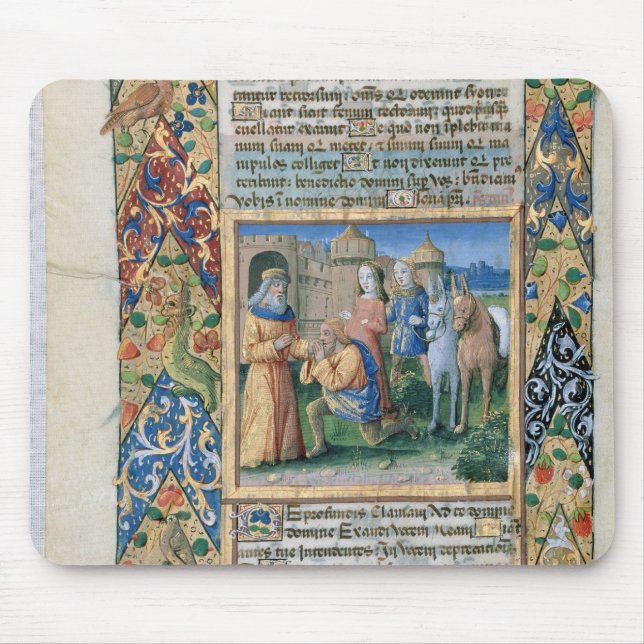 antur retrorsum: omēs qui oderunt syon:
Fiant sicut fenum tectorum: quod priusquam
euellatur exaruit: De quo non īplebit ma
num suam qui metet: et sinum suum qui ma
nipulos colliget Et non dixerunt qui pre
teribant: benedictio domini super vos: bn̄diximus
vobis ī nomine domini Gloria pri.
De profundis Clamaui Ad te domine
domine Exaudi Vocem meam fiant
aures tue Intendentes: In Vocem deprecationis